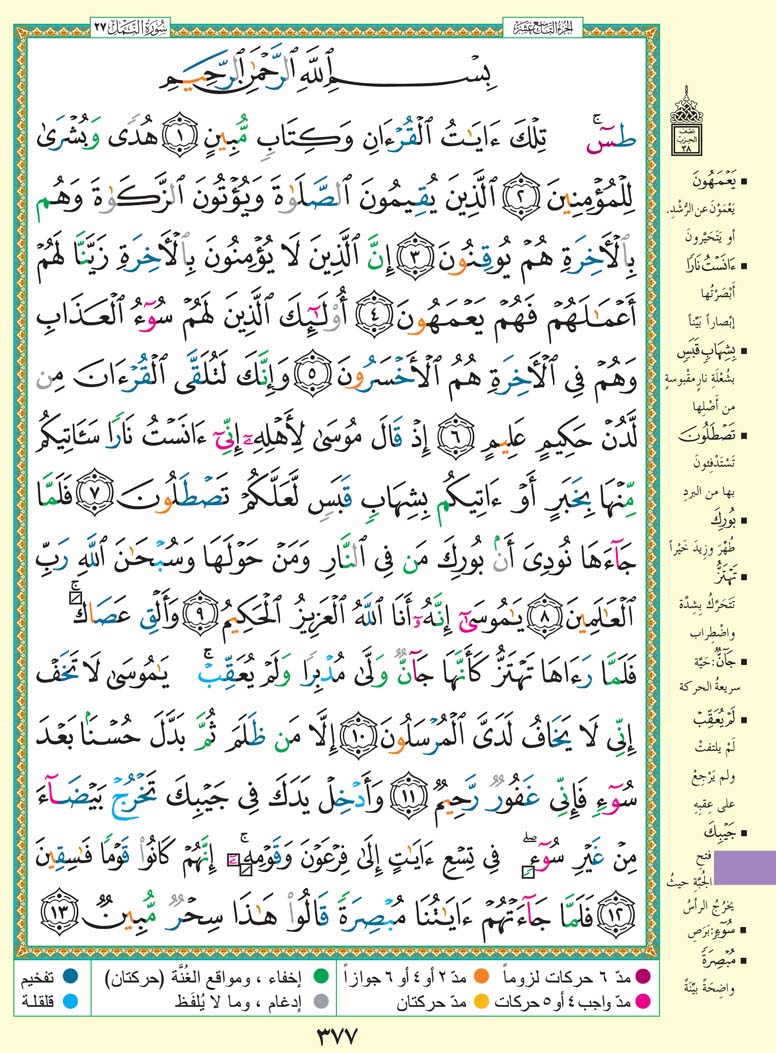 سُورَةُ النَّمْلِ ٢٧
الجُزْءُ التَّاسِعَ عَشَرَ
بِسْمِ ٱللَّهِ ٱلرَّحْمَٰنِ ٱلرَّحِيمِ
طسٓۚ تِلْكَ ءَايَٰتُ ٱلْقُرْءَانِ وَكِتَابٍ مُّبِينٍ ١ هُدًى وَبُشْرَىٰ
لِلْمُؤْمِنِينَ ٢ ٱلَّذِينَ يُقِيمُونَ ٱلصَّلَوٰةَ وَيُؤْتُونَ ٱلزَّكَوٰةَ وَهُم
بِٱلْأَخِرَةِ هُمْ يُوقِنُونَ ٣ إِنَّ ٱلَّذِينَ لَا يُؤْمِنُونَ بِٱلْأَخِرَةِ زَيَّنَّا لَهُمْ
أَعْمَٰلَهُمْ فَهُمْ يَعْمَهُونَ ٤ أُوْلَٰٓئِكَ ٱلَّذِينَ لَهُمْ سُوٓءُ ٱلْعَذَابِ
وَهُمْ فِى ٱلْأَخِرَةِ هُمُ ٱلْأَخْسَرُونَ ٥ وَإِنَّكَ لَتُلَقَّى ٱلْقُرْءَانَ مِن
لَّدُنْ حَكِيمٍ عَلِيمٍ ٦ إِذْ قَالَ مُوسَىٰ لِأَهْلِهِۦٓ إِنِّىٓ ءَانَسْتُ نَارًا سَـَٔاتِيكُم
مِّنْهَا بِخَبَرٍ أَوْ ءَاتِيكُم بِشِهَابٍ قَبَسٍ لَّعَلَّكُمْ تَصْطَلُونَ ٧ فَلَمَّا
جَآءَهَا نُودِىَ أَنۢ بُورِكَ مَن فِى ٱلنَّارِ وَمَنْ حَوْلَهَا وَسُبْحَٰنَ ٱللَّهِ رَبِّ
ٱلْعَٰلَمِينَ ٨ يَٰمُوسَىٰٓ إِنَّهُۥٓ أَنَا ٱللَّهُ ٱلْعَزِيزُ ٱلْحَكِيمُ ٩ وَأَلْقِ عَصَاكَۚ
فَلَمَّا رَءَاهَا تَهْتَزُّ كَأَنَّهَا جَآنٌّ وَلَّىٰ مُدْبِرًا وَلَمْ يُعَقِّبْۚ يَٰمُوسَىٰ لَا تَخَفْ
إِنِّى لَا يَخَافُ لَدَىَّ ٱلْمُرْسَلُونَ ١٠ إِلَّا مَن ظَلَمَ ثُمَّ بَدَّلَ حُسْنًۢا بَعْدَ
سُوٓءٍ فَإِنِّى غَفُورٌ رَّحِيمٌ ١١ وَأَدْخِلْ يَدَكَ فِى جَيْبِكَ تَخْرُجْ بَيْضَآءَ
مِنْ غَيْرِ سُوٓءٍۖ فِى تِسْعِ ءَايَٰتٍ إِلَىٰ فِرْعَوْنَ وَقَوْمِهِۦٓۚ إِنَّهُمْ كَانُوا۟ قَوْمًا فَٰسِقِينَ
١٢ فَلَمَّا جَآءَتْهُمْ ءَايَٰتُنَا مُبْصِرَةً قَالُوا۟ هَٰذَا سِحْرٌ مُّبِينٌ ١٣
نصف
الحزب
٣٨
يَعْمَهُونَ
يَعْمَوْنَ عن الرُّشْدِ.
أو يَتَحَيَّرونَ
ءَانَسْتُ نَارًا
أَبْصَرْتُها
إبْصاراً بَيِّناً
بِشِهَابٍ قَبَسٍ
بشُعْلَةِ نارٍ مقْبوسةٍ
من أَصْلِها
تَصْطَلُونَ
تَسْتَدْفِئونَ
بها من البردِ
بُورِكَ
طُهِّرَ وزِيدَ خَيْراً
تَهْتَزُّ
تَتَحَرَّكُ بِشِدَّة
واضْطِراب
جَآنٌّ: حَيَّة
سريعةُ الحركة
لَمْ يُعَقِّبْ
لَمْ يلتفتْ
ولم يَرْجِعْ
على عقِبِهِ
جَيْبِكَ
فتح
الجُبَّةِ حيثُ
يخرُجُ الرأسُ
سُوٓءٍ: بَرَصٍ
مُبْصِرَةً
واضِحَةً بيِّنةً
مدّ ٦ حركات لزوماً مدّ ٢ أو ٤ أو ٦ جوازاً إخفاء ، ومواقع الغُنَّة (حركتان) تفخيم
مدّ واجب ٤ أو ٥ حركات مدّ حركتان إدغام ، وما لا يُلفَظ قلقلة
٣٧٧